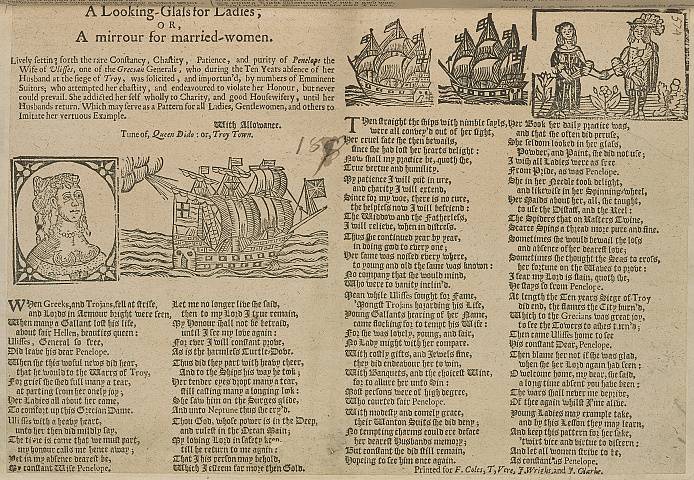 A Looking-Glass for Ladies;
OR,
A mirrour for married-women.
Lively setting forth the rare Constancy, Chastity, Patience, and purity of Penelope the
Wife of Ulisses, one of the Grecian Generals, who during the Ten Years absence of her
Husband at the siege of Troy, was solicited, and importun'd, by numbers of Emminent
Suitors; who attempted her chastity, and endeavoured to violate her Honour, but never
could prevail. She addicted her self wholly to Charity, and good Houswifery, until her
Husbands return. Which may serve as a Pattern for all Ladies, Gentlewomen, and others to
Imitate her vertuous Example.
With Allowance.
Tune of, Queen Dido: or, Troy Town.
WHen Greeks, and Trojans, fell at strife,
and Lords in Armour bright were seen,
When many a Gallant lost his life,
about fair Hellen, beauties queen:
Ulisses, General so free,
Did leave his dear Penelope.
When she this woful news did hear,
that he would to the Warrs of Troy,
For grief she shed full many a tear,
at parting from her onely joy;
Her Ladies all about her came,
To comfort up this Grecian Dame.
Ulisses with a heavy heart,
unto her then did mildly say,
The time is come that we must part,
my honour calls me hence away;
Yet in my absence dearest be,
My constant Wife Penelope.
Let me no longer live she said,
then to my Lord I true remain,
My Honour shall not be betraid,
until I see my love again:
For ever I will constant prove,
As is the harmless Turtle-Dove.
Thus did they part with heavy chear,
And to the Ships his way he took;
Her tender eyes dropt many a tear,
still casting many a longing look:
She saw him on the Surges glide,
And unto Neptune thus she cry'd.
Thou God, whose power is in the Deep,
and rulest in the Ocean Main;
My loving Lord in safety keep
till he return to me again:
That I his person may behold,
Which I esteem far more then Gold.
THen straight the ships with nimble sayls,
were all convey'd out of her sight,
Her cruel fate she then bewails,
since she had lost her hearts delight:
Now shall my practice be, quoth she,
True vertue and humility.
My patience I will put in ure,
and charity I will extend,
Since for my woe, there is no cure,
the helpless now I will befriend:
The Widdow and the Fatherless,
I will relieve, when in distress.
Thus she continued year by year,
in doing good to every one;
Her fame was noised every where,
to young and old the same was known:
No company that she would mind,
Who were to vanity inclin'd.
Mean while Ulisses fought for Fame,
'Mongst Trojans hazarding his Life,
Young Gallants hearing of her Name,
came flocking for to tempt his Wife:
For she was lovely, young, and fair,
No Lady might with her compare.
With costly gifts, and Jewels fine,
they did endeavour her to win,
With Banquets, and the choicest Wine,
for to allure her unto Sin:
Most persons were of high degree,
Who courted fair Penelope.
With modesty and comely grace,
their Wanton Suits she did deny;
No tempting charms could ere deface
her dearest Husbands memory;
But constant she did still remain,
Hoping to see him once again.
Her Book her daily practice was,
and that she often did peruse,
She seldom looked in her glass,
Powder, and Paint, she did not use;
I wish all Ladies were as free
From Pride, as was Penelope.
She in her Needle took delight,
and likewise in her Spinning-wheel,
Her Maids about her, all, she taught,
to use the Distaff, and the Reel:
The Spiders that on Rafters Twine,
Scarce Spins a thread more pure and fine.
Sometimes she would bewail the loss
and absence of her dearest love;
Sometimes she thought the Seas to cross,
her fortune on the Waves to prove:
I fear my Lord is slain, quoth she,
He stays so from Penelope.
At length the Ten years Siege of Troy
did end, the flames the City burn'd,
Which to the Grecians was great joy,
to see the Towers to ashes turn'd;
Then came Ulisses home to see
His constant Dear, Penelope.
Then blame her not if she was glad,
when she her Lord again had seen:
O welcome home, my dear, she said,
a long time absent you have been:
The wars shall never me deprive,
Of thee again whilst I'm alive.
Young Ladies may example take,
and by this Lesson they may learn,
And keep this pattern for her sake,
'twixt vice and vertue to discern:
And let all women strive to be,
As constant as Penelope.
Printed for F. Coles, T, Vere, J. Wright, and J. Clarke.